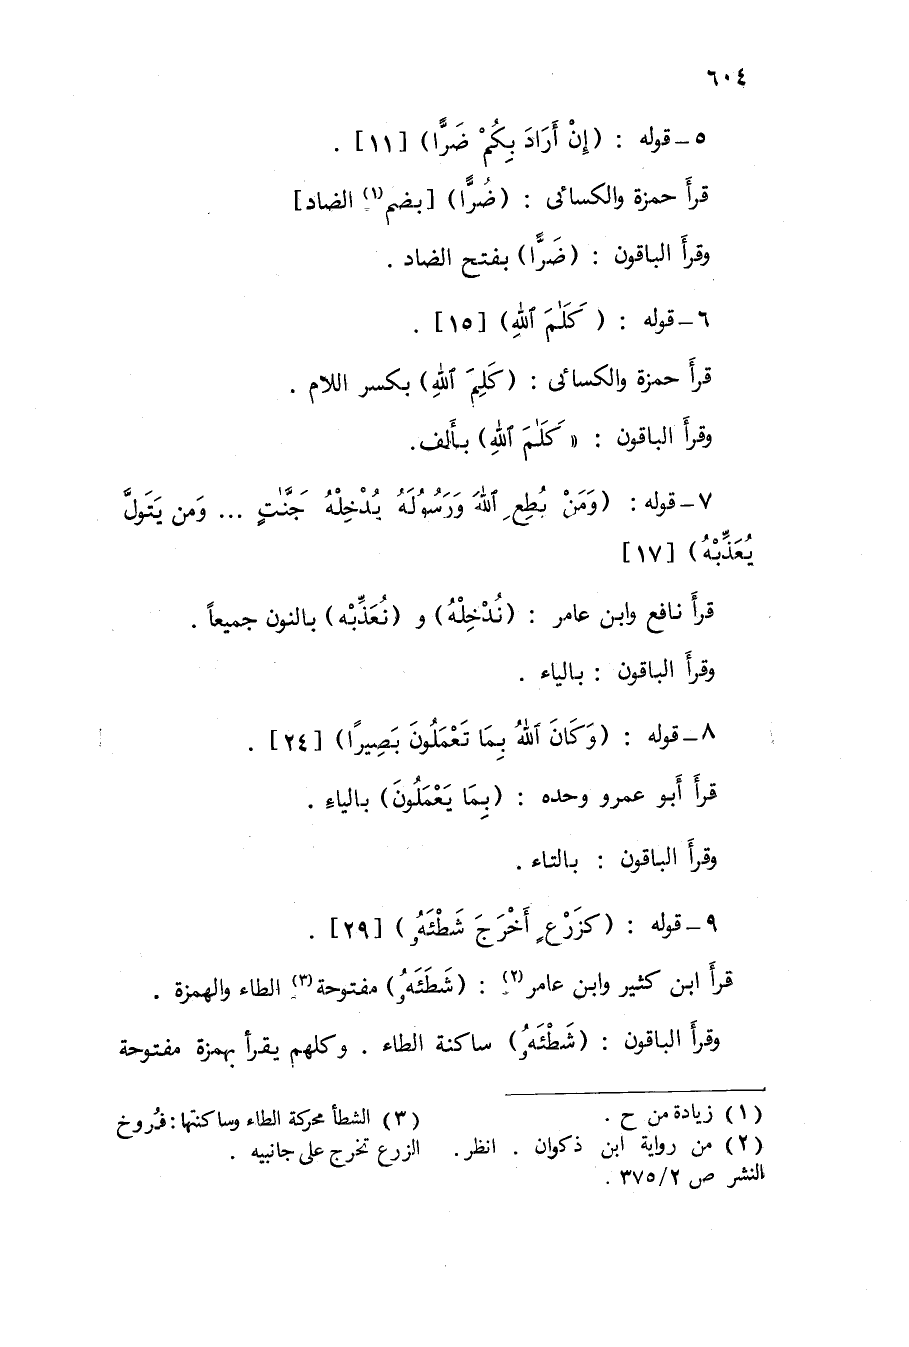 ٦٠٤
٥ – قوله : (إِنْ أَرَادَ بِكُمْ ضَرًّا) [١١] .
قرأ حمزة والكسائى : (ضُرًّا) [بضم(١) الضاد]
وقرأ الباقون : (ضَرًّا) بفتح الضاد .
٦ – قوله : ( كَلَٰمَ ٱللهِ) [١٥] .
قرأ حمزة والكسائى : (كَلِمَ ٱللهِ) بكسر اللام .
وقرأ الباقون : « كَلَٰمَ ٱللهِ) بألف.
٧ – قوله : (وَمَنْ يُطِعِ ٱللهَ وَرَسُولَهُ يُدْخِلْهُ جَنَّٰتٍ ... وَمن يَتَولَّ
يُعَذِّبْهُ) [١٧]
قرأ نافع وابن عامر : (نُدْخِلْهُ) و (نُعَذِّبْه) بالنون جميعاً .
وقرأ الباقون : بالياء .
٨ – قوله : (وَكَانَ ٱللهُ بِمَا تَعْمَلُونَ بَصِيرًا) [٢٤] .
قرأ أبو عمرو وحده : (بِمَا يَعْمَلُونَ) بالياءِ .
وقرأ الباقون : بالتاء .
٩ – قوله : (كزَرْعٍ أَخْرَجَ شَطْئَهُۥ) [٢٩] .
قرأ ابن كثير وابن عامر(٢) : (شَطَئَهُۥ) مفتوحة(٣) الطاء والهمزة .
وقرأ الباقون : (شَطْئَهُۥ) ساكنة الطاء . وكلهم يقرأ بهمزة مفتوحة
(١) زيادة من ح .
(٢) من رواية ابن ذكوان . انظر
النشر ص ٣٧٥/٢ .
(٣) الشطأ محركة الطاء وساكنتها : فُروخ
الزرع تخرج على جانبيه .